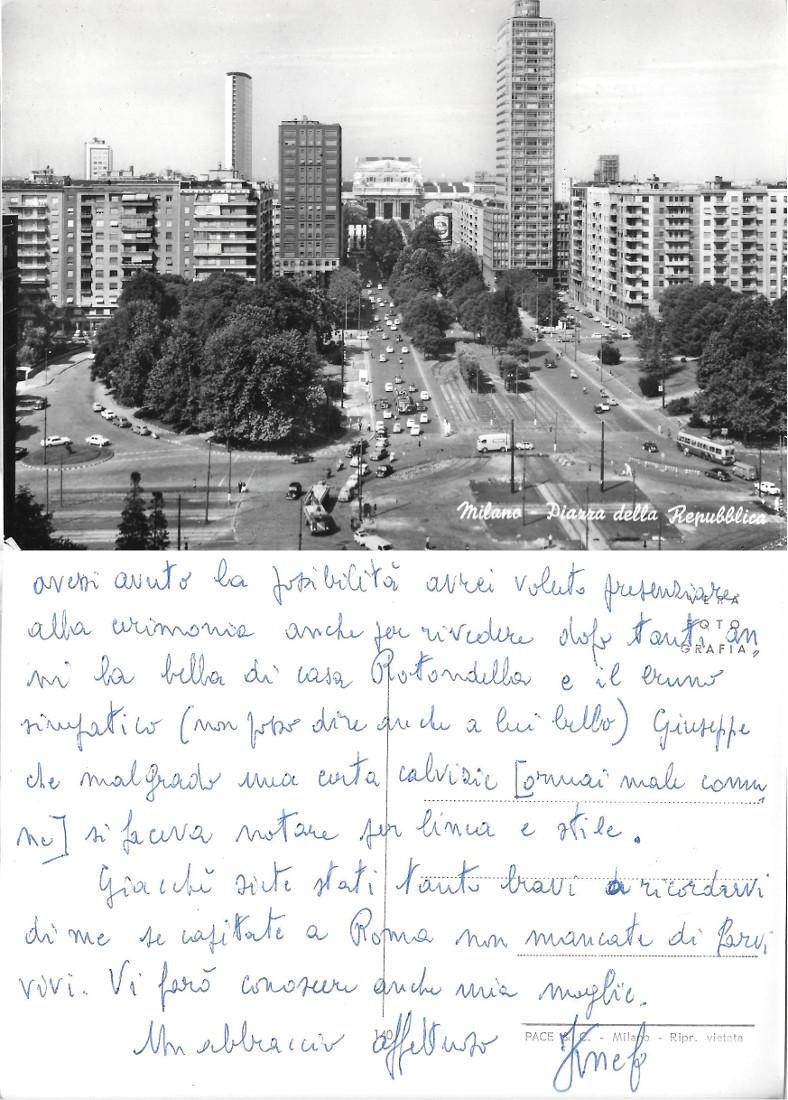 Milano - Piazza della Repubblica
avessi avuto la possibilità avrei voluto presenziare
VERA
FOTO
GRAFIA
alla cerimonia anche per rivedere dopo tanti an„
ni la bella di casa Rotondella e il
simpatico (non posso dire anche a lui bello) Giuseppe
che malgrado una certa calvizie [ormai male comu„
ne] si faceva notare per linea e stile.
Giacché siete stati tanto bravi a ricordarvi
di me se capitate a Roma non mancate di farvi
vivi. Vi farò conoscere anche mia moglie.
Un abbraccio affettuoso
PACE & C. - Milano - Ripr. vietata